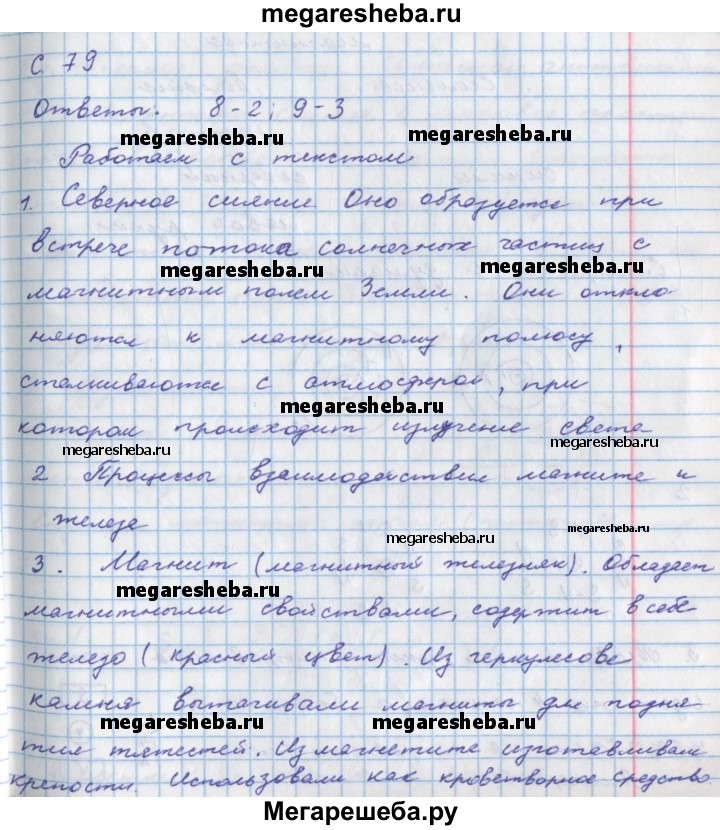 megaresheba.ru
С. 79
Ответы: 8-2; 9-3
megaresheba.ru megaresheba.ru
Работаем с текстом
1. Северное сияние Оно образуется при
встрече потока солнечных частиц с
megaresheba.ru megaresheba.ru
магнитным полем Земли. Они откло
няются к магнитному полюсу,
сталкиваются с атмосферой, при
megaresheba.ru
котором происходит излучение света
megaresheba.ru megaresheba.ru
2 Процессы взаимодействия магнита и
железа
megaresheba.ru megaresheba.ru
3. Магнит (магнитный железняк). Обладает
megaresheba.ru
магнитными свойствами, содержит в себе
железо (красный цвет). Из геркулесова
камня вытачивали магниты для подня
megaresheba.ru megaresheba.ru
тия тяжестей. Из магнетита изготавливали
крепости. Использовали как кроветворное средство
Мегарешеба.ру